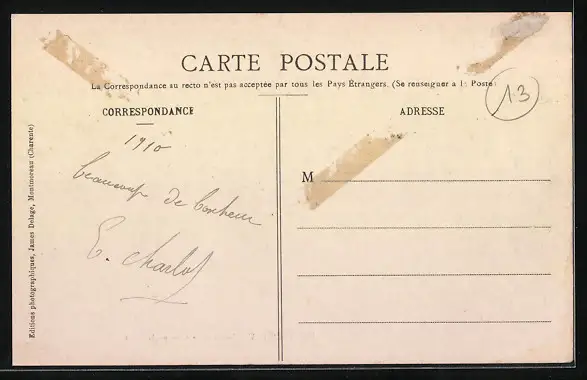 CARTE POSTALE
La Correspondance au recto n'est pas acceptée par tous les Pays Étrangers. (Se renseigner à la Poste)
13
CORRESPONDANCE
ADRESSE
1910
beaucoup de bonheur
E. Charlot
M
Editions photographiques, James Delage, Montmoreau (Charente)